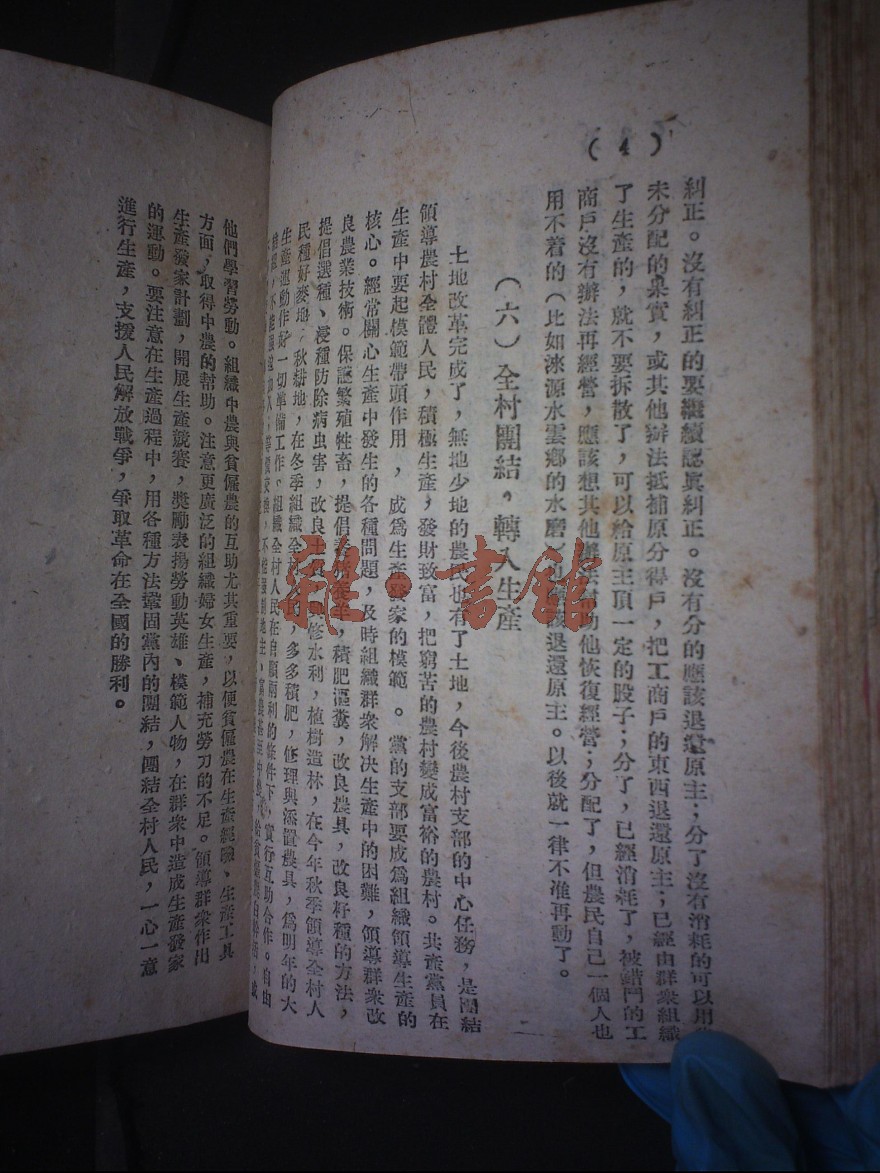 （4）
糾正。沒有糾正的要繼續認眞糾正。沒有分的應該退還原主；分了沒有消耗的可以用
未分配的果實，或其他辦法抵補原分得戶，把工商戶的東西退還原主；已經由群衆組織
了生產的，就不要拆散了，可以給原主頂一定的股子；分了，已經消耗了，被錯鬥的工
商戶沒有辦法再經營，應該想其他辦法幫助他恢復經營；分配了，但農民自己一個人也
用不着的（比如淶源水雲鄉的水磨）也應該退還原主。以後就一律不准再動了。
（六）全村團結，轉入生產
土地改革完成了，無地少地的農民也有了土地，今後農村支部的中心任務，是團結
領導農村全體人民，積極生產，發財致富，把窮苦的農村變成富裕的農村。共產黨員在
生產中要起模範帶頭作用，成爲生產發家的模範。黨的支部要成爲組織領導生產的
核心。經常關心生產中發生的各種問題，及時組織群衆解決生產中的困難，領導群衆改
良農業技術。保護繁殖牲畜，提倡積肥漚糞，改良農具，改良籽種的方法，
提倡選種、浸種防除病虫害，改良土修水利，植樹造林，在今年秋季領導全村人
民種好麥地，秋耕地，在冬季組織全村，多多積肥，修理與添置農具，爲明年的大
生產運動作好一切準備工作。組織全村人民在自願兩利的條件下，實行互助合作。自由
他們學習勞動。組織中農與貧僱農的互助尤其重要，以便貧僱農在生產經驗、生產工具
方面，取得中農的幫助。注意更廣泛的組織婦女生產，補充勞力的不足。領導群衆作出
生產發家計劃，開展生產競賽，獎勵表揚勞動英雄、模範人物，在群衆中造成生產發家
的運動。要注意在生產過程中，用各種方法鞏固黨內的團結，團結全村人民，一心一意
進行生產，支援人民解放戰爭，爭取革命在全國的勝利。
二
雜·書館